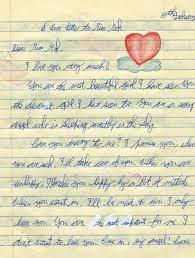 A love letter to Kim
Dear Kim
I love you very much!
You are the most beautiful girl I have seen. You
the cleverest girl I had seen to. You are a very
angel who is sleeping mostly in the sky.
Can you marry to me? I promise you, when
you are sick, I'll take care of you. When you are
unhappy, I'll make you happy by a lot of
When you want me, I'll be next to you. I only
love you. You are so important for me. I
don't want to lose you. Love you, my angel!